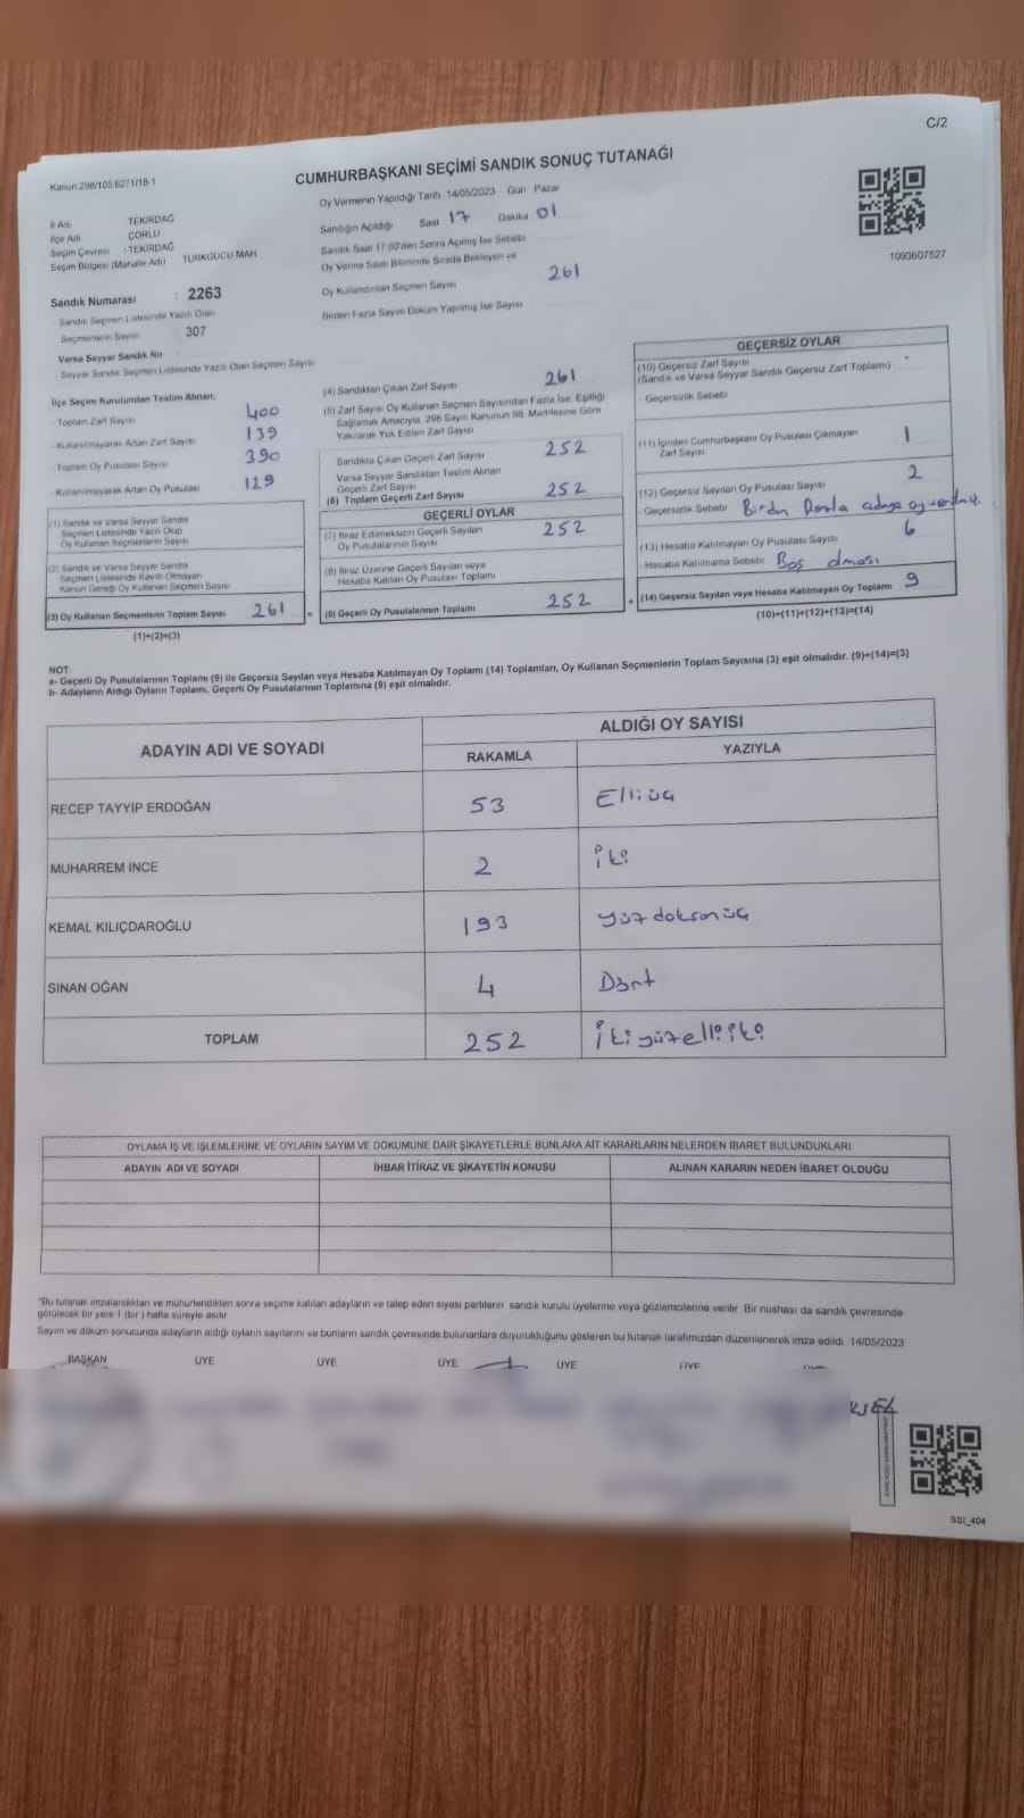 C/2
Kanun:298/105 6271/18-1
CUMHURBAŞKANI SEÇİMİ SANDIK SONUÇ TUTANAĞI
Oy Vermenin Yapıldığı Tarih 14/05/2023 Gün Pazar
İl Adı TEKİRDAĞ
İlçe Adı ÇORLU
Seçim Çevresi : TEKİRDAĞ
Seçim Bölgesi (Mahalle Adı) TÜRKGÜCÜ MAH
Sandığın Açıldığı Saat 17 Dakika 01
Sandık Saat 17:00'den Sonra Açılmış İse Sebebi
Oy Verme Saati Bitiminde Sırada Bekleyen ve
Oy Kullandırılan Seçmen Sayısı 261
Birden Fazla Sayım Döküm Yapılmış İse Sayısı
1093607527
Sandık Numarası : 2263
Sandık Seçmen Listesinde Yazılı Olan
Seçmenlerin Sayısı 307
Varsa Seyyar Sandık No
Seyyar Sandık Seçmen Listesinde Yazılı Olan Seçmen Sayısı
İlçe Seçim Kurulundan Teslim Alınan;
Toplam Zarf Sayısı 400
Kullanılmayarak Artan Zarf Sayısı 139
Toplam Oy Pusulası Sayısı 390
Kullanılmayarak Artan Oy Pusulası 129
(1) Sandık ve Varsa Seyyar Sandık
Seçmen Listesinde Yazılı Olup
Oy Kullanan Seçmenlerin Sayısı
(2) Sandık ve Varsa Seyyar Sandık
Seçmen Listesinde Kayıtlı Olmayan
Kanun Gereği Oy Kullanan Seçmen Sayısı
(3) Oy Kullanan Seçmenlerin Toplam Sayısı 261
(1)+(2)=(3)
(4) Sandıktan Çıkan Zarf Sayısı 261
(5) Zarf Sayısı Oy Kullanan Seçmen Sayısından Fazla İse, Eşitliği
Sağlamak Amacıyla, 298 Sayılı Kanunun 98. Maddesine Göre
Yakılarak Yok Edilen Zarf Sayısı
Sandıkta Çıkan Geçerli Zarf Sayısı 252
Varsa Seyyar Sandıktan Teslim Alınan
Geçerli Zarf Sayısı
(6) Toplam Geçerli Zarf Sayısı 252
GEÇERLİ OYLAR
(7) İtiraz Edilmeksizin Geçerli Sayılan
Oy Pusulalarının Sayısı 252
(8) İtiraz Üzerine Geçerli Sayılan veya
Hesaba Katılan Oy Pusulası Toplamı
(9) Geçerli Oy Pusulalarının Toplamı 252
GEÇERSİZ OYLAR
(10) Geçersiz Zarf Sayısı -
(Sandık ve Varsa Seyyar Sandık Geçersiz Zarf Toplamı)
Geçersizlik Sebebi
(11) İçinden Cumhurbaşkanı Oy Pusulası Çıkmayan
Zarf Sayısı 1
(12) Geçersiz Sayılan Oy Pusulası Sayısı 2
Geçersizlik Sebebi Birden Fazla adaya oy verdiniz.
(13) Hesaba Katılmayan Oy Pusulası Sayısı 6
Hesaba Katılmama Sebebi Boş olması
(14) Geçersiz Sayılan veya Hesaba Katılmayan Oy Toplamı 9
(10)+(11)+(12)+(13)=(14)
NOT:
a- Geçerli Oy Pusulalarının Toplamı (9) ile Geçersiz Sayılan veya Hesaba Katılmayan Oy Toplamı (14) Toplamları, Oy Kullanan Seçmenlerin Toplam Sayısına (3) eşit olmalıdır. (9)+(14)=(3)
b- Adayların Aldığı Oyların Toplamı, Geçerli Oy Pusulalarının Toplamına (9) eşit olmalıdır.
ADAYIN ADI VE SOYADI ALDIĞI OY SAYISI
RAKAMLA YAZIYLA
RECEP TAYYİP ERDOĞAN 53 Elliüç
MUHARREM İNCE 2 İki
KEMAL KILIÇDAROĞLU 193 yüzdoksanüç
SİNAN OĞAN 4 Dört
TOPLAM 252 İkiyüzelliiki
OYLAMA İŞ VE İŞLEMLERİNE VE OYLARIN SAYIM VE DÖKÜMÜNE DAİR ŞİKAYETLERLE BUNLARA AİT KARARLARIN NELERDEN İBARET BULUNDUKLARI
ADAYIN ADI VE SOYADI İHBAR İTİRAZ VE ŞİKAYETİN KONUSU ALINAN KARARIN NEDEN İBARET OLDUĞU
"Bu tutanak imzalandıktan ve mühürlendikten sonra seçime katılan adayların ve talep eden siyasi partilerin sandık kurulu üyelerine veya gözlemcilerine verilir. Bir nüshası da sandık çevresinde
görülecek bir yere 1 (bir) hafta süreyle asılır
Sayım ve döküm sonucunda adayların aldığı oyların sayılarını ve bunların sandık çevresinde bulunanlara duyurulduğunu gösteren bu tutanak tarafımızdan düzenlenerek imza edildi. 14/05/2023
BAŞKAN ÜYE ÜYE ÜYE ÜYE ÜYE